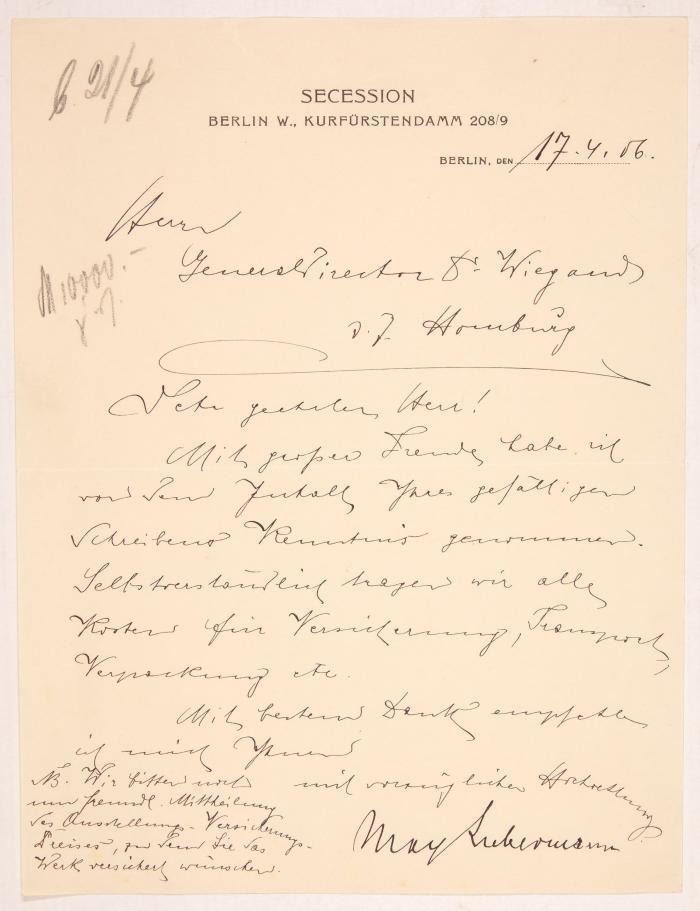 6 21/4
SECESSION
BERLIN W., KURFÜRSTENDAMM 208/9
BERLIN, DEN 17.4.06.
Herrn
Generaldirector Dr. Wiegand
M 10000.-
z. Z. Homburg
Sehr geehrter Herr!
Mit großer Freude habe ich
von dem Inhalt Ihres gefälligen
Schreibens Kenntnis genommen.
Selbstverständlich tragen wir alle
Kosten für Versicherung, Transport,
Verpackung etc.
Mit bestem Dank empfehle
ich mich Ihnen
mit vorzüglicher Hochachtung
Max Liebermann
NB. Wir bitten noch
um freundl. Mittheilung
des Ausstellungs-Versicherungs-
Preises, zu dem Sie das
Werk versichert wünschen.